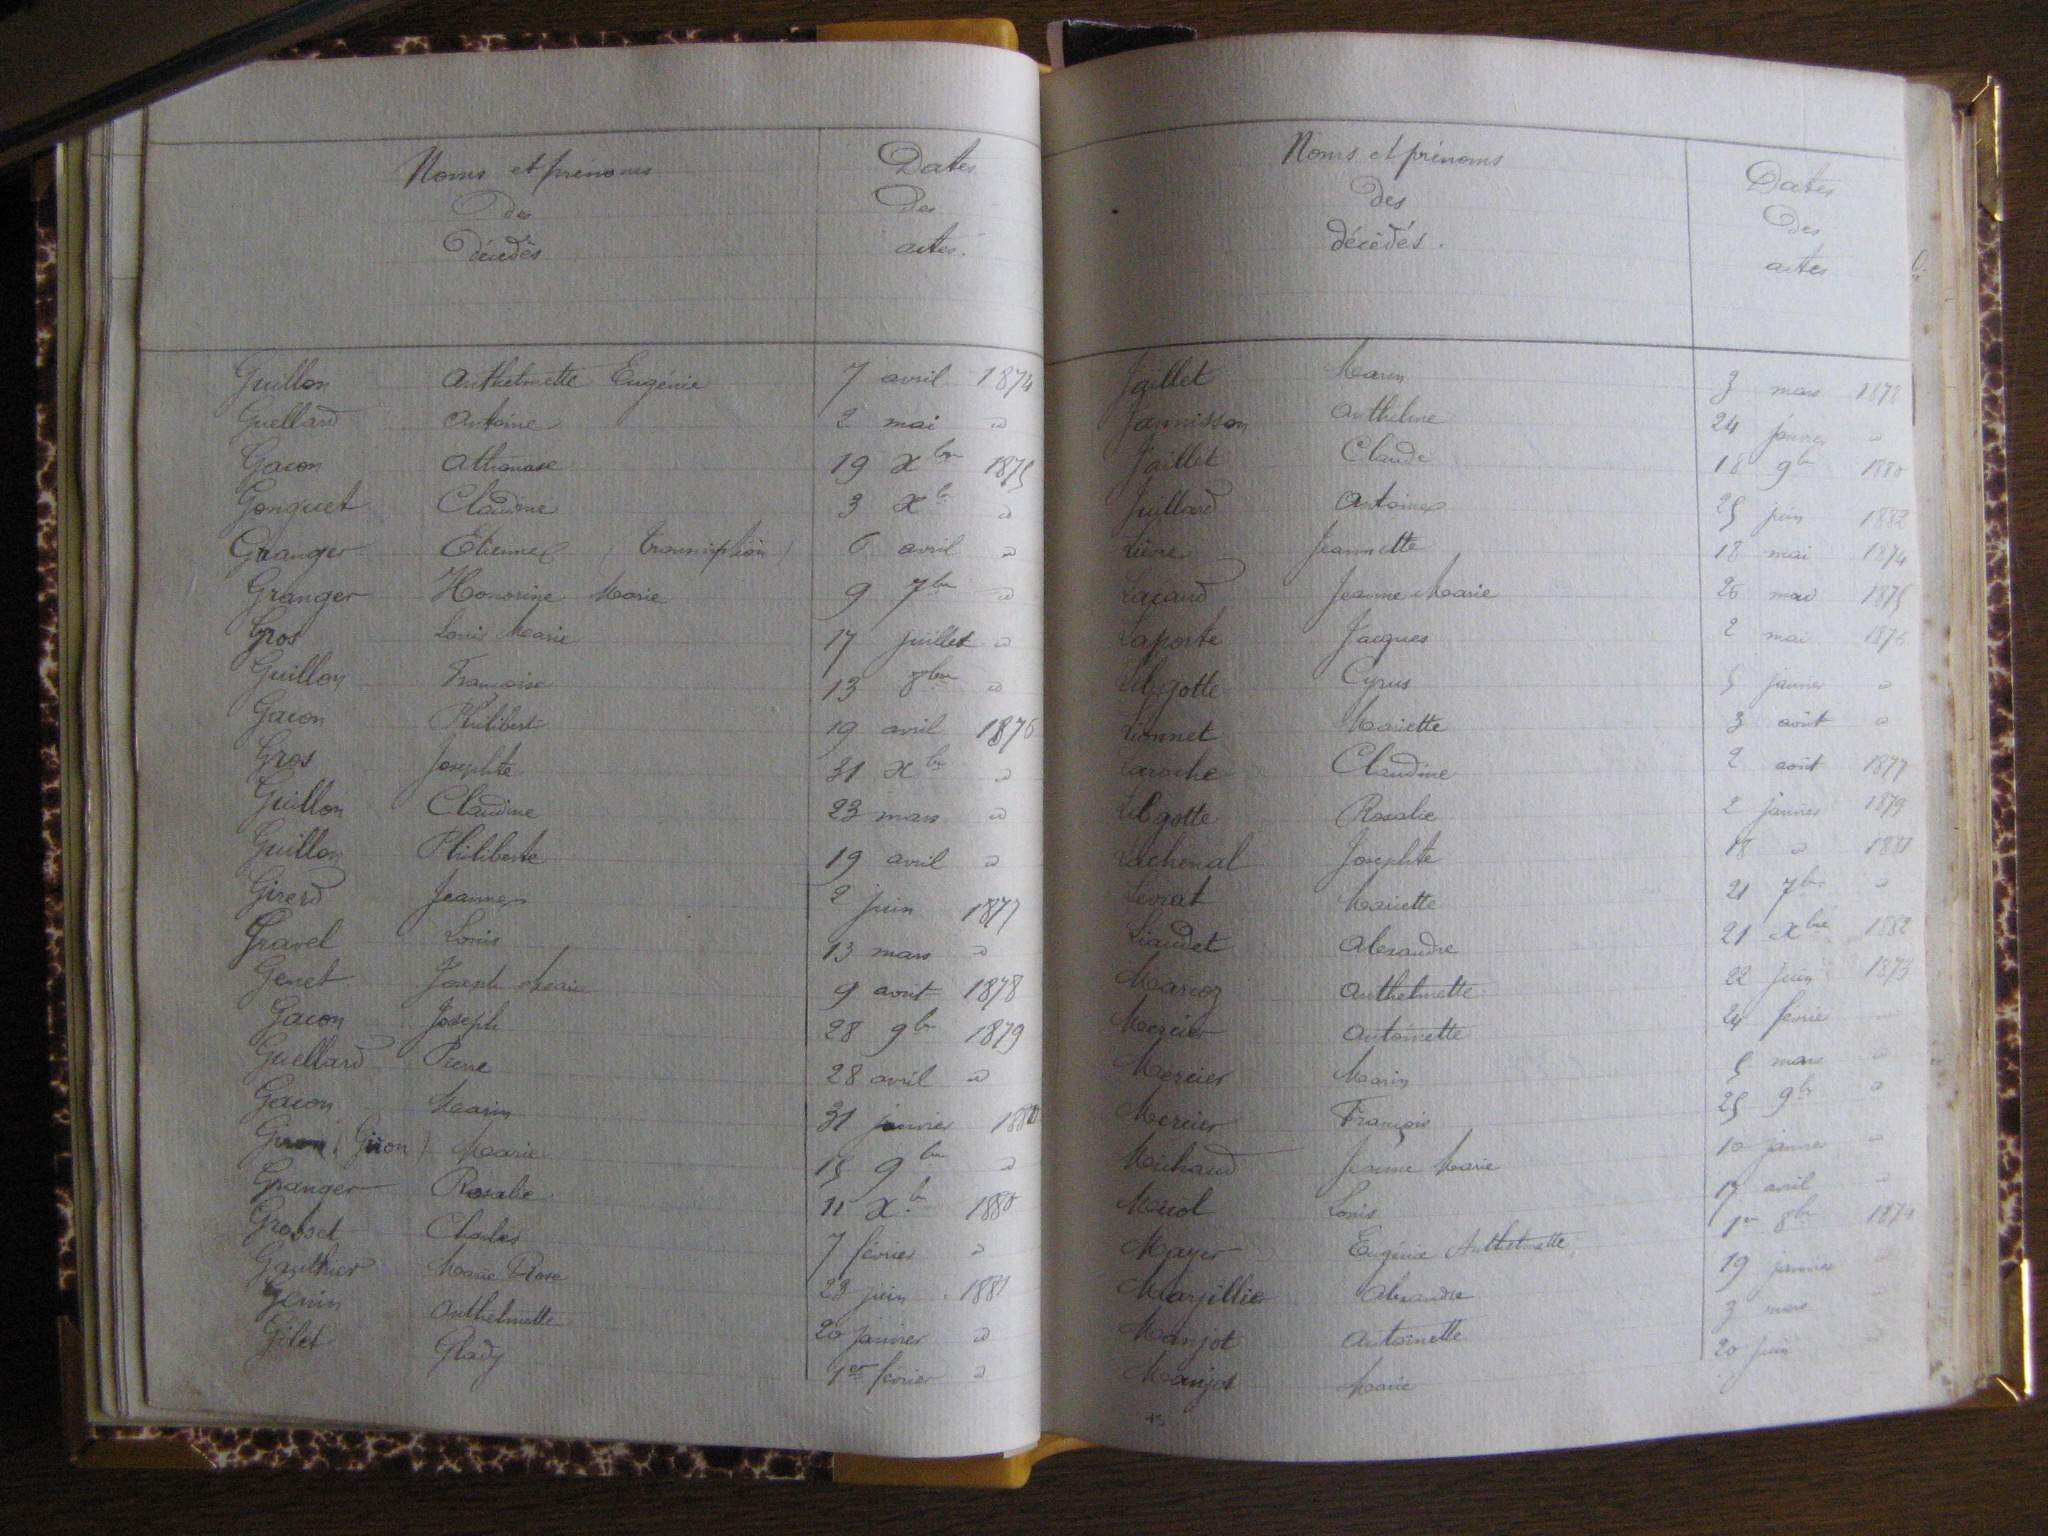 Noms et prénoms
des
décédés
Dates
des
actes.
Guillon Anthelmette Eugénie 7 avril 1874
Guellard Antoine 2 mai "
Gacon Athanase 19 Xbre 1875
Gonguet Claudine 3 Xbre "
Granger Etienne (transcription) 6 avril "
Granger Honorine Marie 9 7bre "
Gros Louis Marie 17 juillet "
Guillon Françoise 13 8bre "
Gacon Philibert 19 avril 1876
Gros Josephte 31 Xbre "
Guillon Claudine 23 mars "
Guillon Philiberte 19 avril "
Girerd Jeanne 2 juin 1877
Gravel Louis 13 mars "
Genet Joseph Marie 9 aout 1878
Gacon Joseph 28 9bre 1879
Guellard Pierre 28 avril "
Gacon Marin 31 janvier 1880
(Giron) Marie 15 9bre "
Granger Rosalie 11 Xbre 1880
Grosset Charles 7 février "
Gauthier Marie Rose 23 juin 1881
Genin Anthelmette 20 janvier "
Gilet Glady 1er février "
Noms et prénoms
des
décédés.
Dates
des
actes
Jaillet Marin 3 mars 1878
Jannisson Anthelme 24 janvier "
Jaillet Claude 18 9bre 1880
Juillard Antoine 25 juin 1882
Lièvre Jeannette 18 mai 1874
Lacaud Jeanne Marie 26 mai 1875
Laporte Jacques 2 mai 1876
Lilgotte Cyrus 5 janvier "
Lionnet Mariette 3 août "
Laroche Claudine 2 août 1877
Lilgotte Rosalie 2 janvier 1879
Lachenal Josephte 18 " 1881
Levrat Mariette 21 7bre "
Liaudet Alexandre 21 Xbre 1882
Marcoz Anthelmette 22 juin 1873
Mercier Antoinette 24 février "
Mercier Marin 5 mars "
Mercier François 25 9bre "
Michaud Jeanne Marie 10 janvier "
Louis 17 avril "
Mayer Eugénie Anthelmette 1er 8bre 1874
Marjillier Alexandre 19 janvier "
Manjot Antoinette 3 mars "
Manjot Marie 20 juin